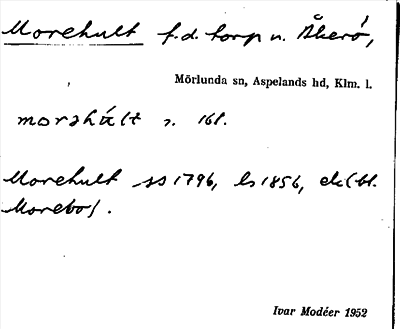 Morehult f.d. torp u. Åkerö,
Mörlunda sn, Aspelands hd, Klm. l.
morəhúlt n. 161.
Morehult ss 1796, ls 1856, ek (bl.
Morebo).
Ivar Modéer 1952